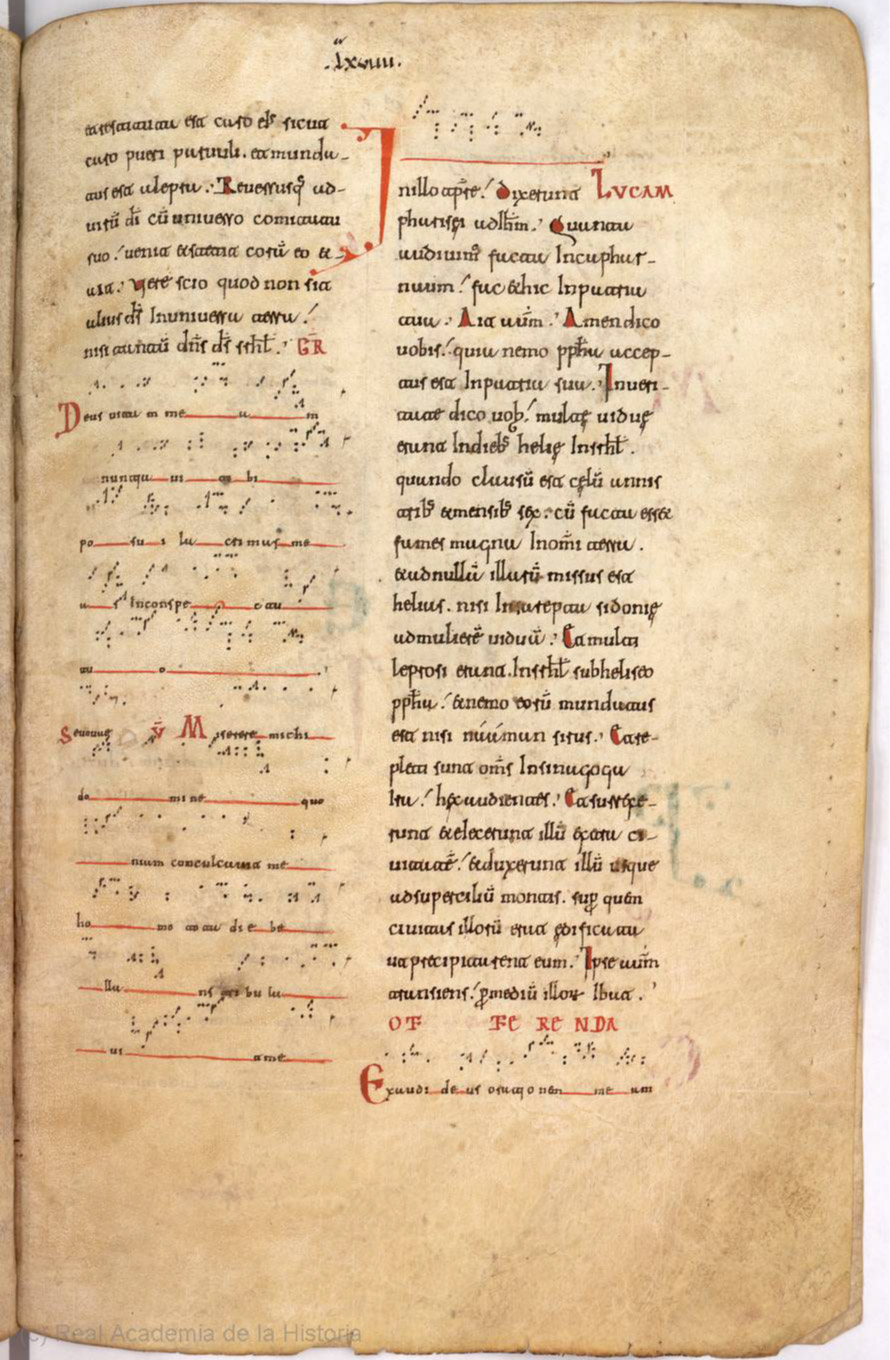 .lxviiii.
etrestituta est caro eis sicut
caro pueri paruuli. et munda-
tus est a lepra. Reuersusq ad-
uirū dī cū uniuerso comitatu
suo. uenit et stetit corā eo et
ait. Vere scio quod non sit
alius ds In uniuersa terra.
nisi tantū dns ds srhl. GR
Deus uitam me a m
nuntia ui ti bi
po su i la crimas me
a s Inconspe c tu
tu o
Seuouae V Miserere michi
do mi ne quo
niam conculcauit me
ho mo to ta di e be
lla ns tri bu la
ui t me
In illo tpre. Dixerunt LVCAM
pharisei ad ihm. Quanta
audiuim facta In caphar-
naum. fac et hic In patria
tua. Ait aūm. Amen dico
uobis. quia nemo ppha accep-
tus est In patria sua. In ueri-
tate dico uob. multe uidue
erunt In dieb helie In srhl.
quando clausū est celū annis
trib et mensib sex. cū facta esset
fames magna In omi terra.
et ad nullā illarū missus est
helias. nisi In sarepta sidonie
ad mulierē uiduā. Et multi
leprosi erunt In srhl sub heliseo
ppha. et nemo eorū mundatus
est nisi naaman sirus. Et re-
pleti sunt oms In sinagoga
Ira. hec audientes. Et surrexe-
runt et eiecerunt illū extra ci-
uitatē. et duxerunt illū usque
ad superciliū montis. supr quem
ciuitas illorū erat edificata
ut precipitarent eum. Ipse aūm
transiens. p mediū illor Ibat.
OF FE RE NDA
Exaudi de us orationem me am
(c) Real Academia de la Historia